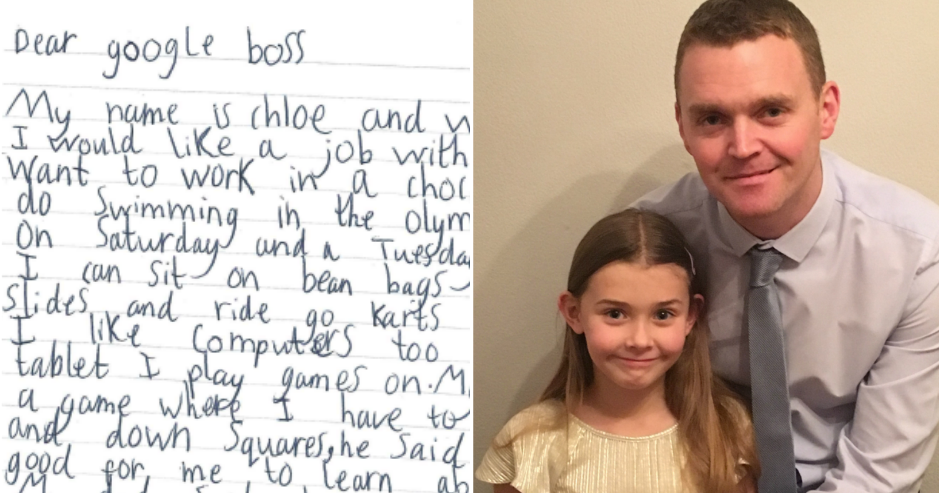 Dear google boss
My name is chloe and w
I would like a job with
want to work in a choc
do swimming in the olym
On Saturday and a Tuesda
I can sit on bean bags
slides and ride go karts
I like computers too
tablet I play games on. M
a game where I have to
and down squares, he said
good for me to learn ab